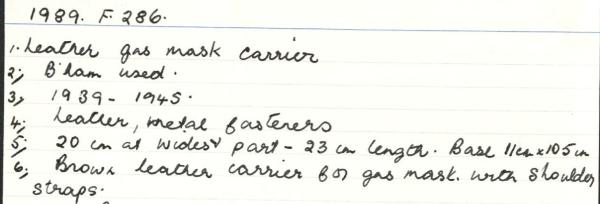 1989. F 286.
1. Leather gas mask carrier
2; B'ham used.
3; 1939 - 1945.
4; Leather, metal fasteners
5; 20 cm at widest part - 23 cm length. Base 11cm x 10 5 cm
6; Brown leather carrier for gas mask. with shoulder
straps.